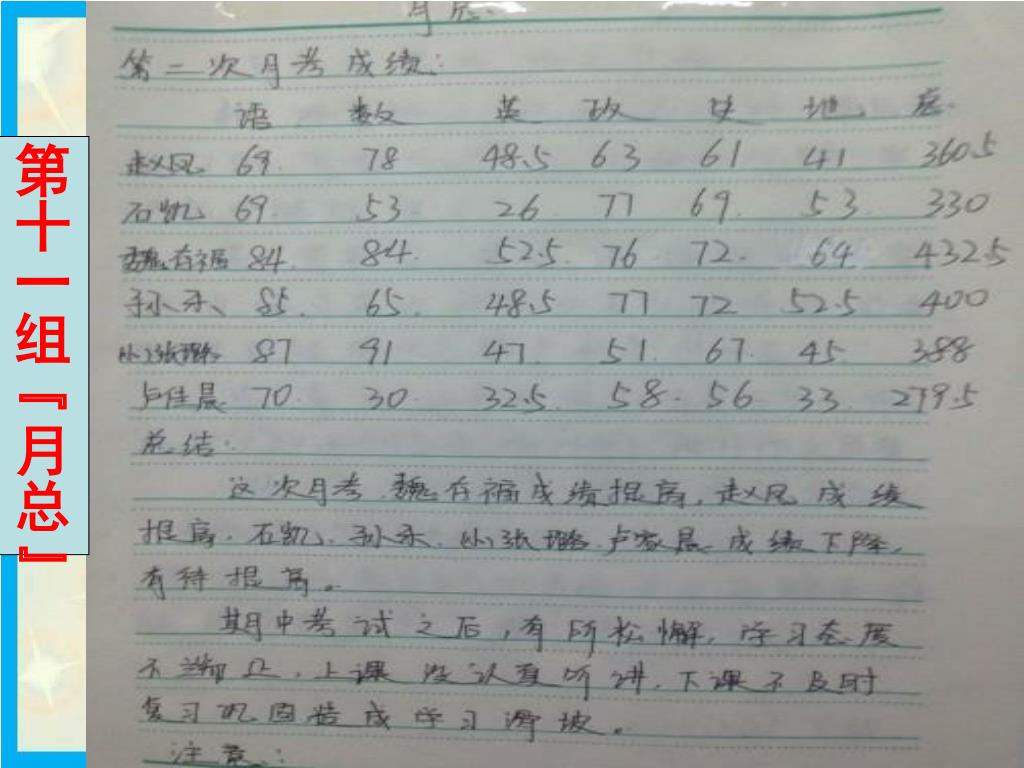 第十一组『月总』
月总:
第二次月考成绩:
语 数 英 政 史 地 总
赵凤 69 78 48.5 63 61 41 360.5
石凯 69 53 26 77 69 53 330
魏存福 84 84 52.5 76 72 64 432.5
孙禾 85 65 48.5 77 72 52.5 400
小张璐 87 91 47 51 67 45 388
卢佳晨 70 30 32.5 58 56 33 279.5
总结:
这次月考,魏存福成绩提高,赵凤成绩
提高,石凯、孙禾、小张璐、卢家晨成绩下降,
有待提高。
期中考试之后,有所松懈,学习态度
不端正,上课没认真听讲,下课不及时
复习巩固造成学习滑坡。
注意: